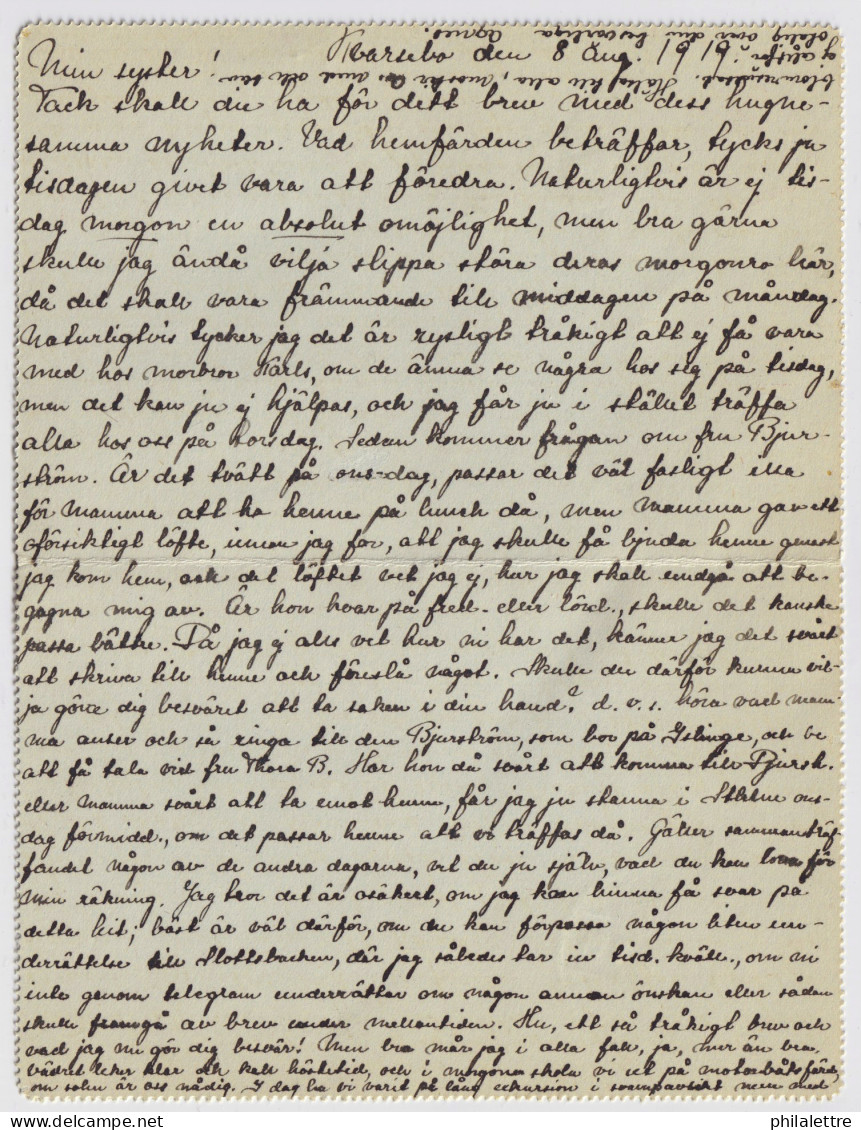 Kvarsebo den 8 Aug. 1919.
Min syster!
Tack skall du ha för ditt brev med dess hugne-
samma nyheter. Vad hemfärden beträffar, tycks ju
tisdagen givet vara att föredra. Naturligtvis är ej tis-
dag morgon en absolut omöjlighet, men bra gärna
skulle jag ändå vilja slippa störa deras morgonro här,
då det skall vara främmande till middagen på måndag.
Naturligtvis tycker jag det är rysligt tråkigt att ej få vara
med hos morbror Karls, om de ämna se några hos sig på tisdag,
men det kan ju ej hjälpas, och jag får ju i stället träffa
alla hos oss på torsdag. Sedan kommer frågan om fru Bjur-
ström. Är det tvätt på ons-dag, passar det väl fasligt illa
för mamma att ha henne på lunch då, men mamma gav ett
oförsiktigt löfte, innan jag for, att jag skulle få bjuda henne genast
jag kom hem, och det löftet vet jag ej, hur jag skall undgå att be-
gagna mig av. Är hon kvar på fred. eller lörd., skulle det kanske
passa bättre. Då jag ej alls vet hur ni har det, känner jag det svårt
att skriva till henne och föreslå något. Skulle du därför kunna vil-
ja göra dig besväret att ta saken i din hand? d.v.s. höra vad mam-
ma anser och så ringa till den Bjurström, som bor på Islinge, och be
att få tala vid fru Thora B. Har hon då svårt att komma till Djursh.
eller mamma svårt att ta emot henne, får jag ju stanna i Sthlm ons-
dag förmidd., om det passar henne att vi träffas då. Gäller sammanträf-
fandet någon av de andra dagarna, vet du ju själv, vad du kan lova för
min räkning. Jag tror det är osäkert, om jag kan hinna få svar på
detta hit; bäst är väl därför, om du kan förpassa någon liten un-
derrättelse till Slottsbacken, där jag således tar in tisd. kväll., om ni
inte genom telegram underrättar om någon annan önskan eller sådan
skulle framgå av brev under mellantiden. Hu, ett så tråkigt brev och
vad jag nu gör dig besvär! Men bra mår jag i alla fall, ja, mer än bra.
Vädret leker klar och kall hösttid, och i morgon skola vi ut på motorbåtsfärd,
om solen är oss nådig. I dag ha vi varit på lång exkursion i svampavsikt men med